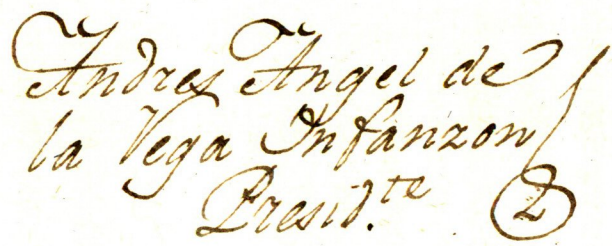 Andres Angel de
la Vega Infanzon
Presid.te
2